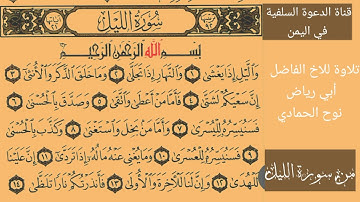 قناة الدعوة السلفية
في اليمن
تلاوة للاخ الفاضل
أبي رياض
نوح الحمادي
سُورَةُ اللَّيْلِ
بِسْمِ اللَّهِ الرَّحْمَٰنِ الرَّحِيمِ
وَالَّيْلِ إِذَا يَغْشَىٰ ١ وَالنَّهَارِ إِذَا تَجَلَّىٰ ٢ وَمَا خَلَقَ الذَّكَرَ وَالْأُنثَىٰ ٣
إِنَّ سَعْيَكُمْ لَشَتَّىٰ ٤ فَأَمَّا مَنْ أَعْطَىٰ وَاتَّقَىٰ ٥ وَصَدَّقَ بِالْحُسْنَىٰ ٦
فَسَنُيَسِّرُهُ لِلْيُسْرَىٰ ٧ وَأَمَّا مَنْ بَخِلَ وَاسْتَغْنَىٰ ٨ وَكَذَّبَ بِالْحُسْنَىٰ ٩
فَسَنُيَسِّرُهُ لِلْعُسْرَىٰ ١٠ وَمَا يُغْنِي عَنْهُ مَالُهُ إِذَا تَرَدَّىٰ ١١ إِنَّ عَلَيْنَا
لَلْهُدَىٰ ١٢ وَإِنَّ لَنَا لَلْآخِرَةَ وَالْأُولَىٰ ١٣ فَأَنذَرْتُكُمْ نَارًا تَلَظَّىٰ ١٤
من سورة الليل